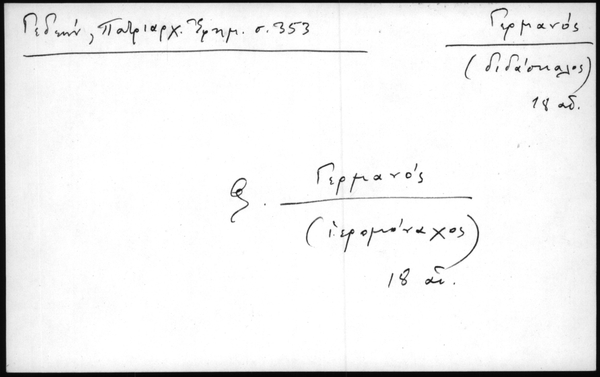 Γεδεών, Πατριαρχ. Ἐφημ. σ. 353
Γερμανός
(διδάσκαλος)
18 αἰ.
β. Γερμανός
(ἱερομόναχος)
18 αἰ.